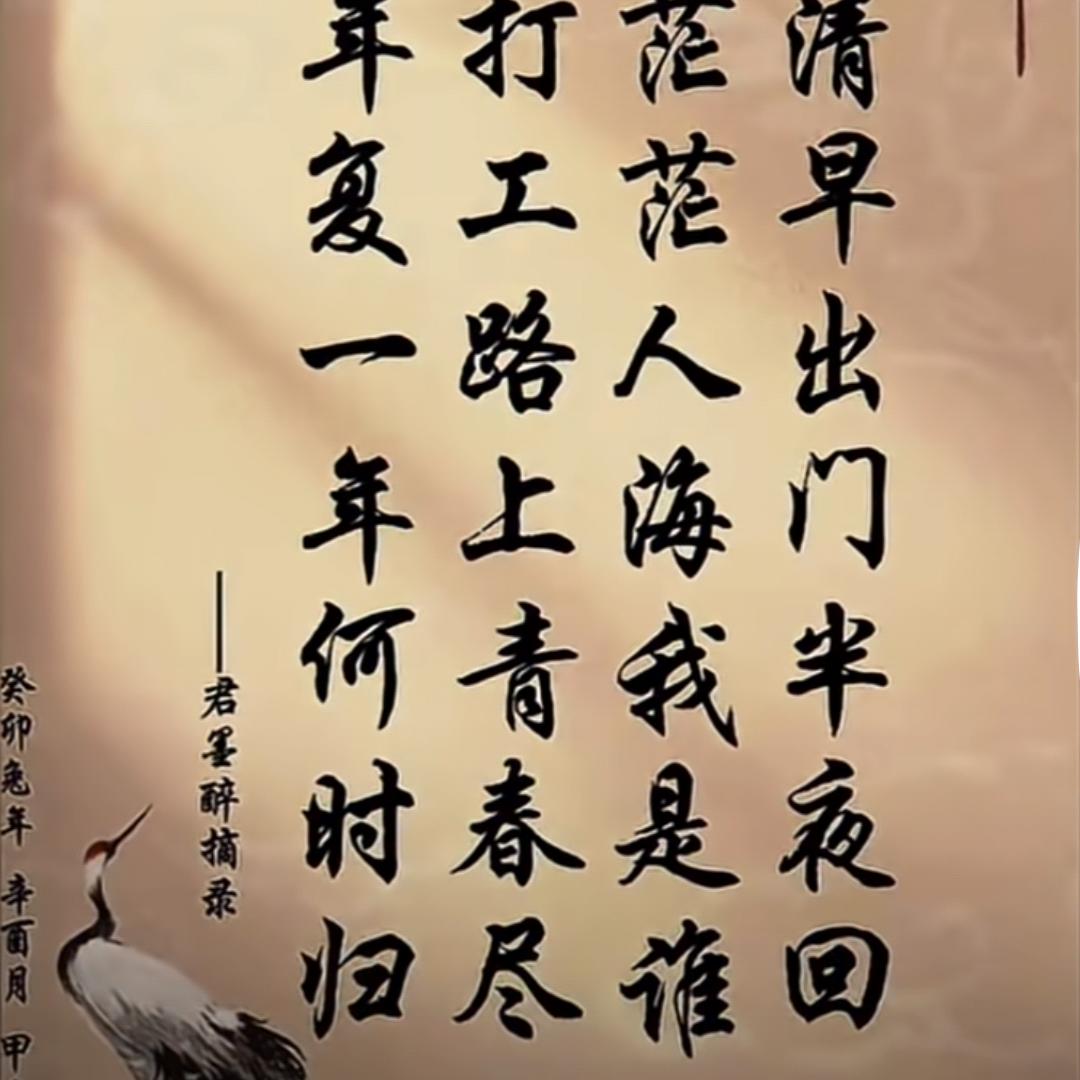 清早出门半夜回
茫茫人海我是谁
打工路上青春尽
年复一年何时归
——君墨醉摘录
癸卯兔年 辛酉月 甲